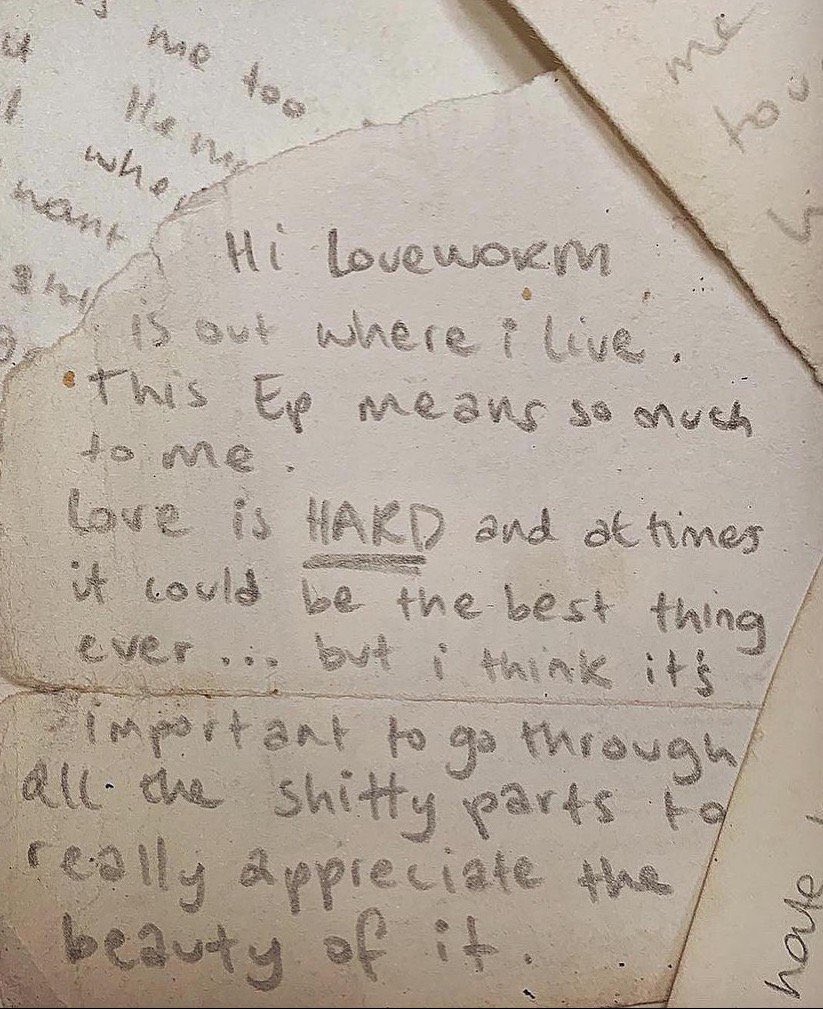 me too
He
whe
want
me
tou
Hi Loveworm
is out where i live.
This Ep means so much
to me.
Love is HARD and at times
it could be the best thing
ever... but i think it's
important to go through
all the shitty parts to
really appreciate the
beauty of it.
have